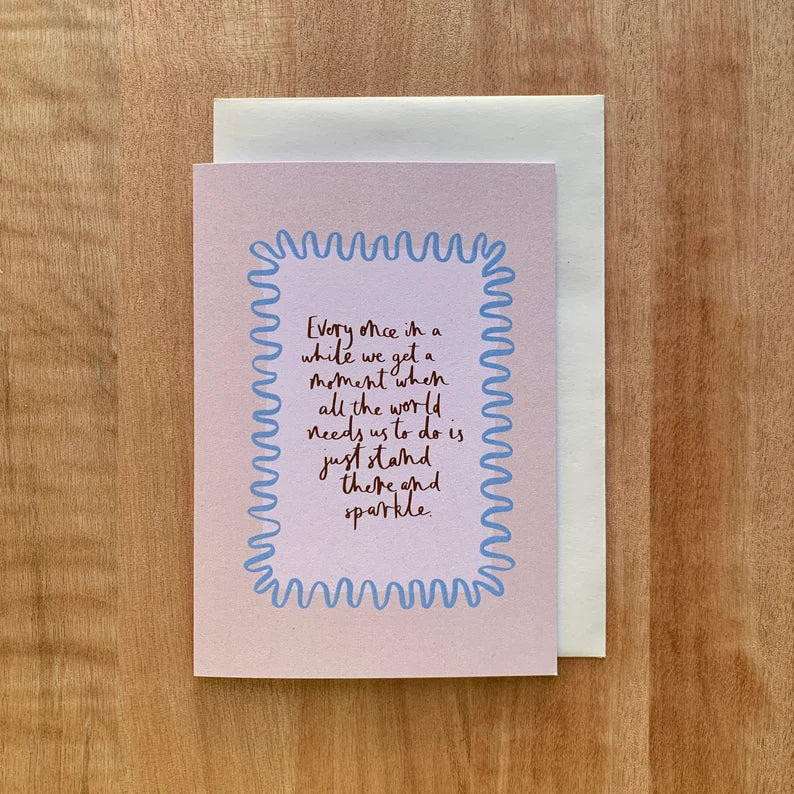 Every once in a
while we get a
moment when
all the world
needs us to do is
just stand
there and
sparkle.